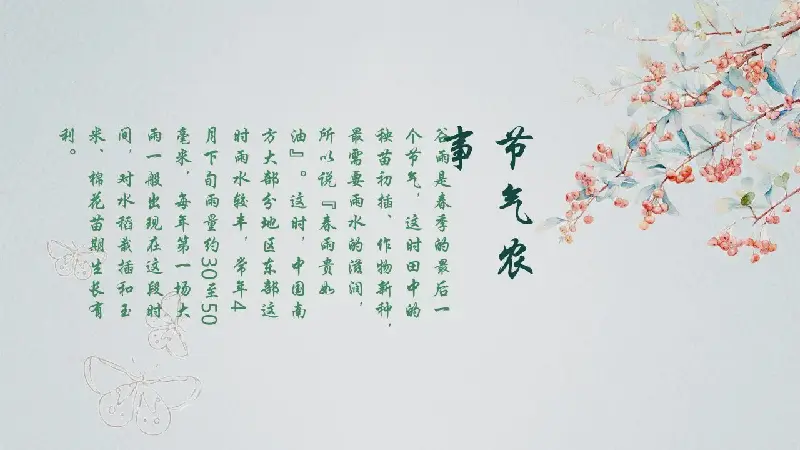 节气农
事
谷雨是春季的最后一
个节气，这时田中的
秧苗初插、作物新种，
最需要雨水的滋润，
所以说『春雨贵如
油』。这时，中国南
方大部分地区东部这
时雨水较丰，常年4
月下旬雨量约30至50
毫米，每年第一场大
雨一般出现在这段时
间，对水稻栽插和玉
米、棉花苗期生长有
利。